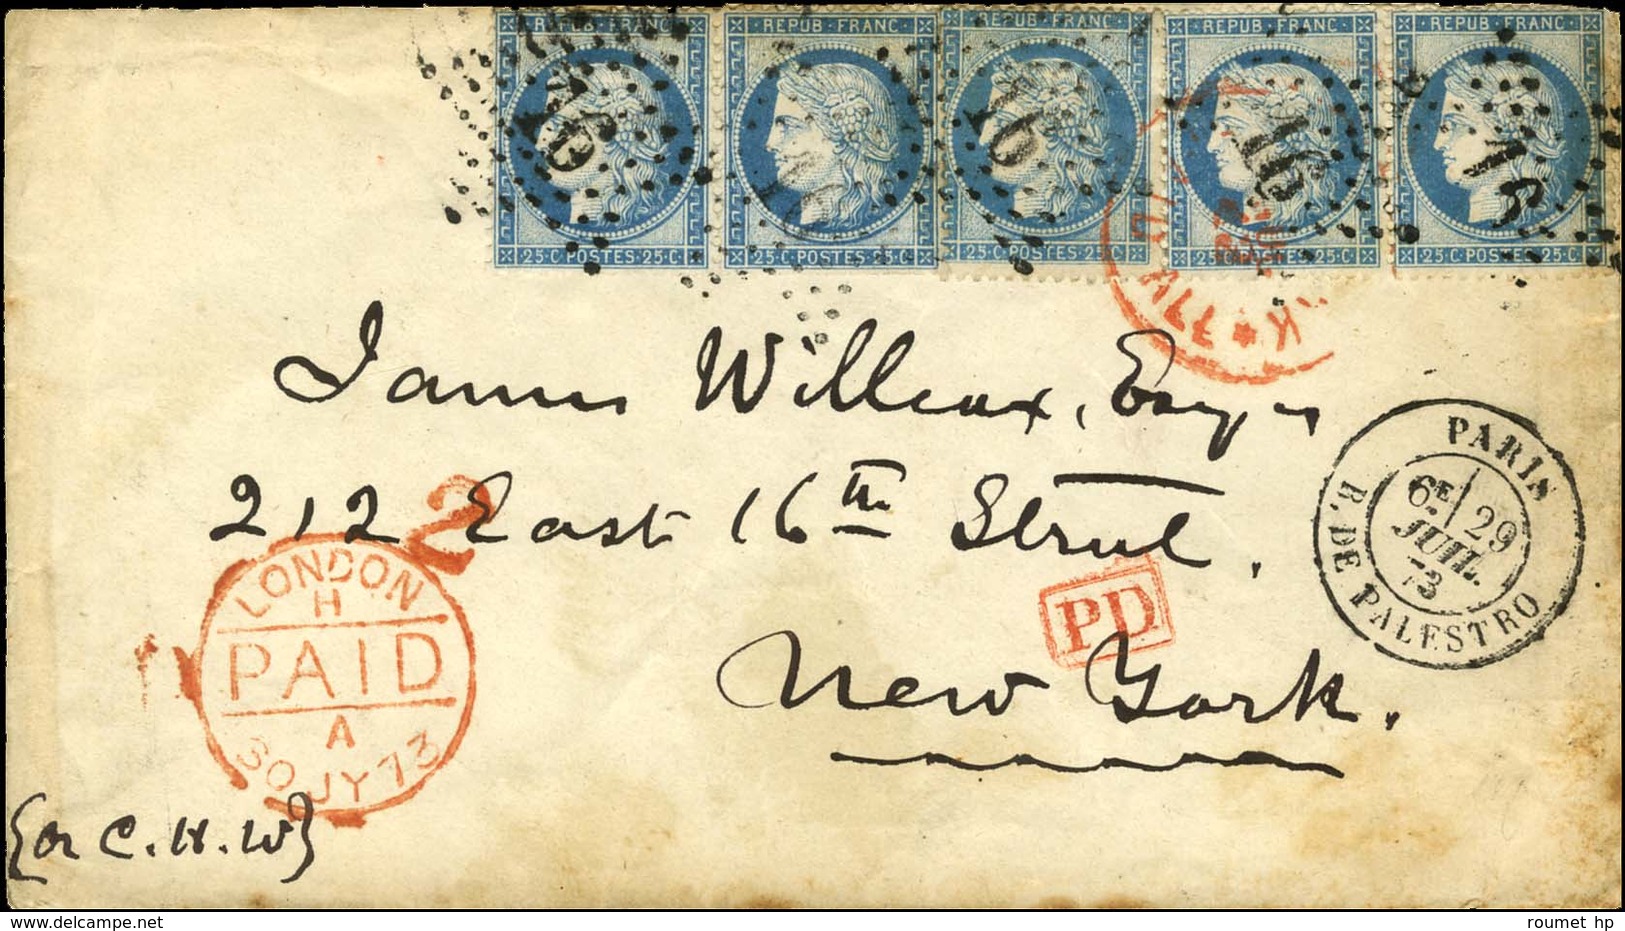 REPUB·FRANC· REPUB·FRANC· REPUB·FRANC· REPUB·FRANC· REPUB·FRANC·
16 16 16 16 16
25·C·POSTES·25·C· 25·C·POSTES·25·C· 25·C·POSTES·25·C· 25·C·POSTES·25·C· 25·C·POSTES·25·C·
James Willcox, Esqre
212 East 16th Street.
New York.
2
LONDON
H
PAID
A
30 JY 73
PD
PARIS
6E 29
JUIL.
73
R. DE PALESTRO
{or C. H. W}
www.delcampe.net
roumet hp